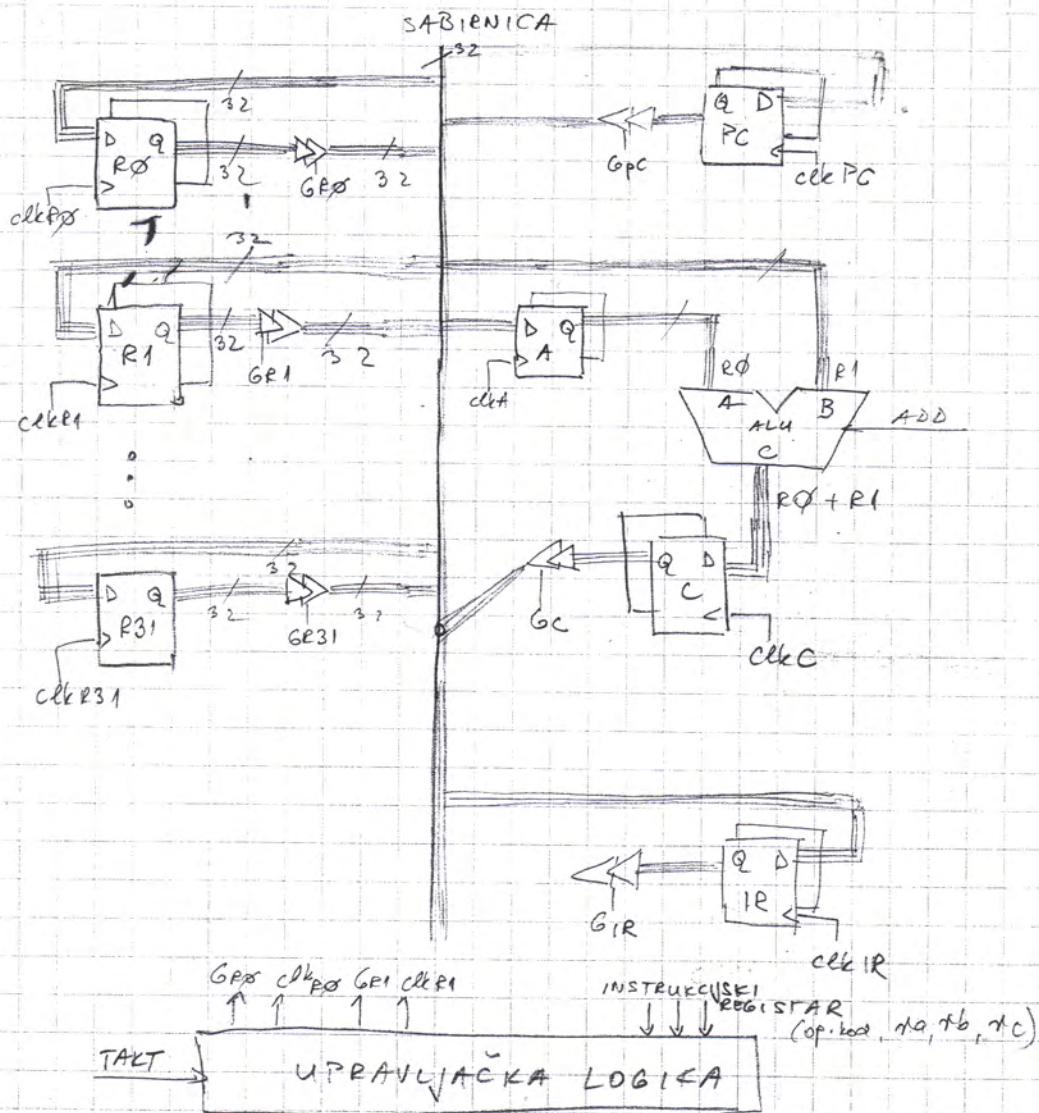 SABIRNICA
32
32
D Q
RØ
32
GRØ
32
clkRØ
Q D
PC
GPC
clkPC
32
D Q
R1
32
GR1
32
clkR1
D Q
A
clkA
RØ
R1
A
B
ALU
C
ADD
RØ + R1
32
D Q
R31
32
GR31
32
clkR31
Q D
C
GC
clkC
Q D
IR
GIR
clkIR
GRØ clkRØ GR1 clkR1
INSTRUKCIJSKI
REGISTAR
(op.kod, ra, rb, rc)
TAKT
UPRAVLJAČKA LOGIKA